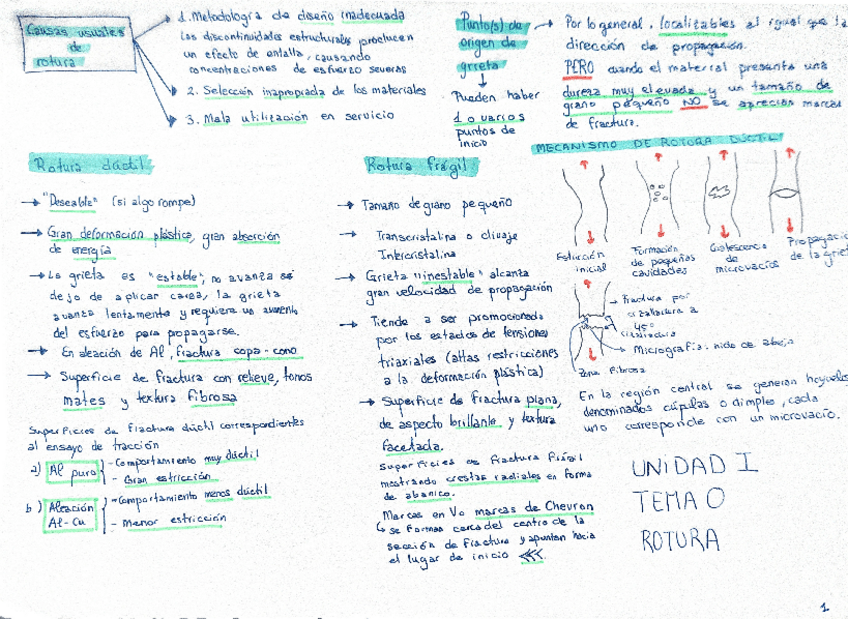 Causas usuales
de
rotura
1. Metodología de diseño inadecuada
Las discontinuidades estructurales producen
un efecto de entalla, causando
concentraciones de esfuerzo severas
2. Selección inapropiada de los materiales
3. Mala utilización en servicio
Punto(s) de
origen de
grieta
Pueden haber
1 o varios
puntos de
inicio
Por lo general, localizables al igual que la
dirección de propagación.
PERO cuando el material presenta una
dureza muy elevada y un tamaño de
grano pequeño NO se aprecian marcas
de fractura.
Rotura dúctil
→ "Deseable" (si algo rompe)
→ Gran deformación plástica, gran absorción
de energía
→ La grieta es "estable", no avanza si
dejo de aplicar carga, la grieta
avanza lentamente y requiere un aumento
del esfuerzo para propagarse.
→ En aleación de Al, fractura copa-cono
→ Superficie de fractura con relieve, tonos
mates y textura fibrosa
Superficies de fractura dúctil correspondientes
al ensayo de tracción
a) Al puro
- Comportamiento muy dúctil
- Gran estricción
b) Aleación
Al-Cu
- Comportamiento menos dúctil
- Menor estricción
Rotura frágil
→ Tamaño de grano pequeño
→ Transcristalina o clivaje
Intercristalina
→ Grieta "inestable" alcanza
gran velocidad de propagación
→ Tiende a ser promocionada
por los estados de tensiones
triaxiales (altas restricciones
a la deformación plástica)
→ Superficie de fractura plana,
de aspecto brillante y textura
facetada.
Superficies de fractura frágil
mostrando crestas radiales en forma
de abanico.
Marcas en V o marcas de Chevron
↳ se forman cerca del centro de la
sección de fractura y apuntan hacia
el lugar de inicio <<<
MECANISMO DE ROTURA DÚCTIL
Estricción
inicial
Formación
de pequeñas
cavidades
Coalescencia
de
microvacíos
Propagació
de la griet
→ Fractura por
cizalladura a
45°
cizalladura
→ Micrografía: nido de abeja
Zona fibrosa
En la región central se generan hoyuelos
denominados cúpulas o dimples, cada
uno corresponde con un microvacío.
UNIDAD I
TEMA 0
ROTURA
1